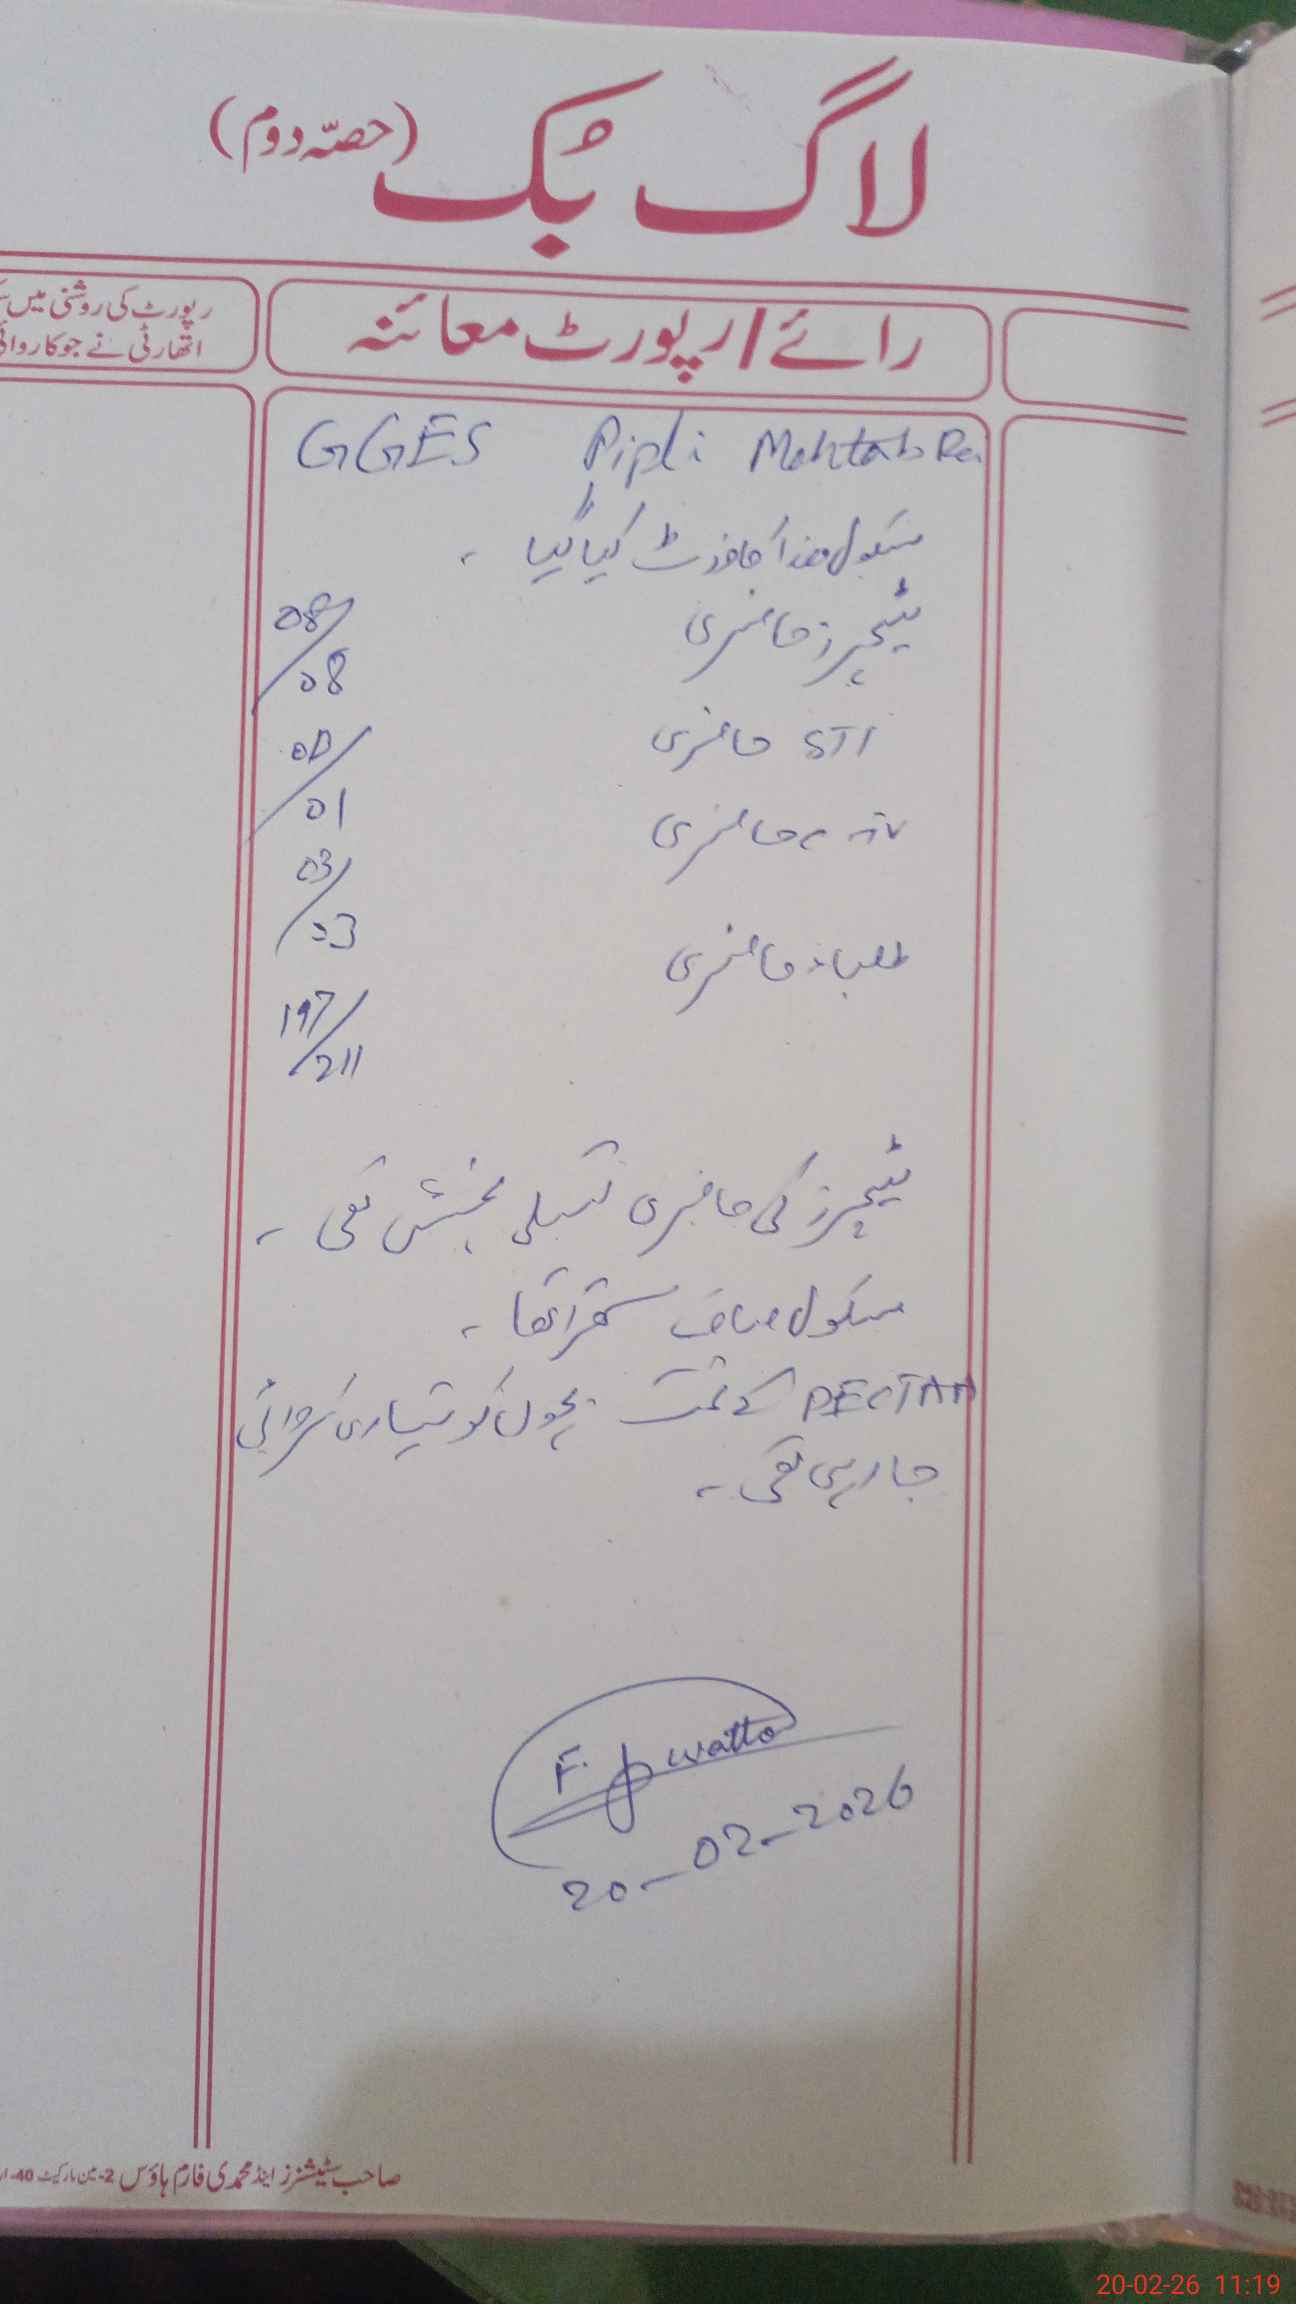 لاگ بُک (حصّہ دوم)
رائے/رپورٹ معائنہ
رپورٹ کی روشنی میں
اتھارٹی نے جو کاروائی
GGES Pipli Mahtab Rai
سکول ھذا کا وزٹ کیا گیا ۔
ٹیچرز حاضری 08/08
STI حاضری 01/01
حاضری 03/03
طلباء حاضری 197/211
ٹیچرز کی حاضری تسلی بخش تھی ۔
سکول صاف ستھرا تھا ۔
PECTAA کے تحت بچوں کو تیاری کروائی
جا رہی تھی ۔
F. J watto
20-02-2026
صاحب سٹیشنرز اینڈ محمدی فارم ہاؤس 2-مین مارکیٹ 40-ار
20-02-26 11:19